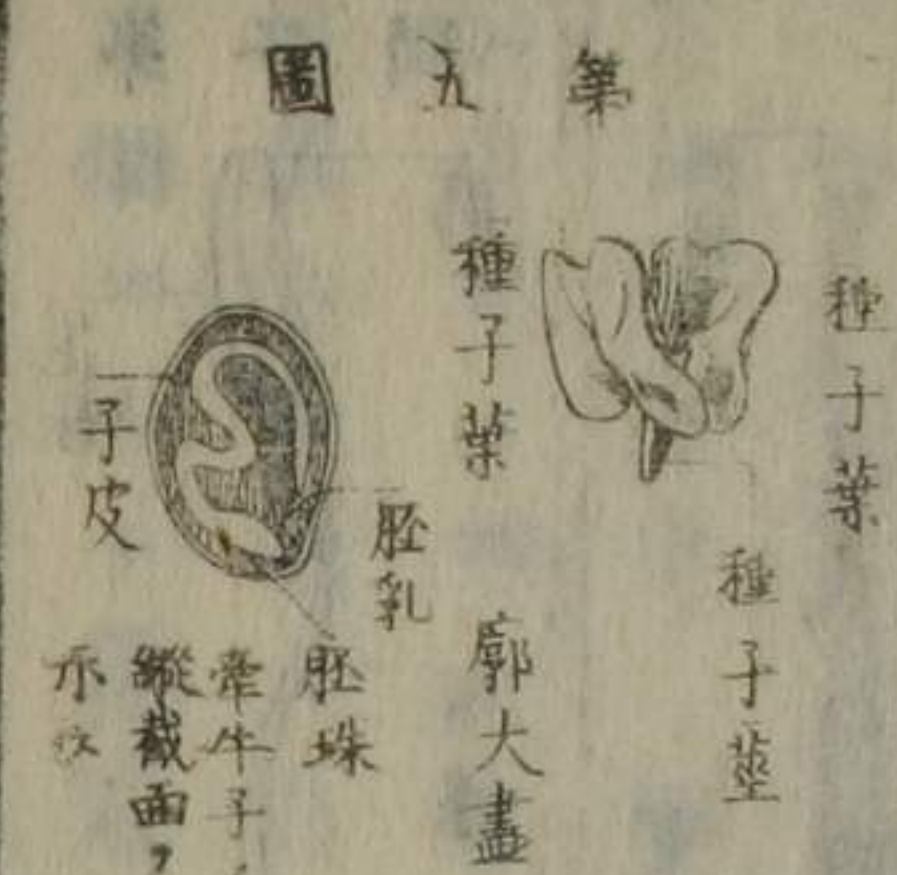 第五圖
種子葉
種子莖
種子葉
廓大畫
胚乳
胚珠
子皮
牽牛子ノ
縱截面ヲ
示ス